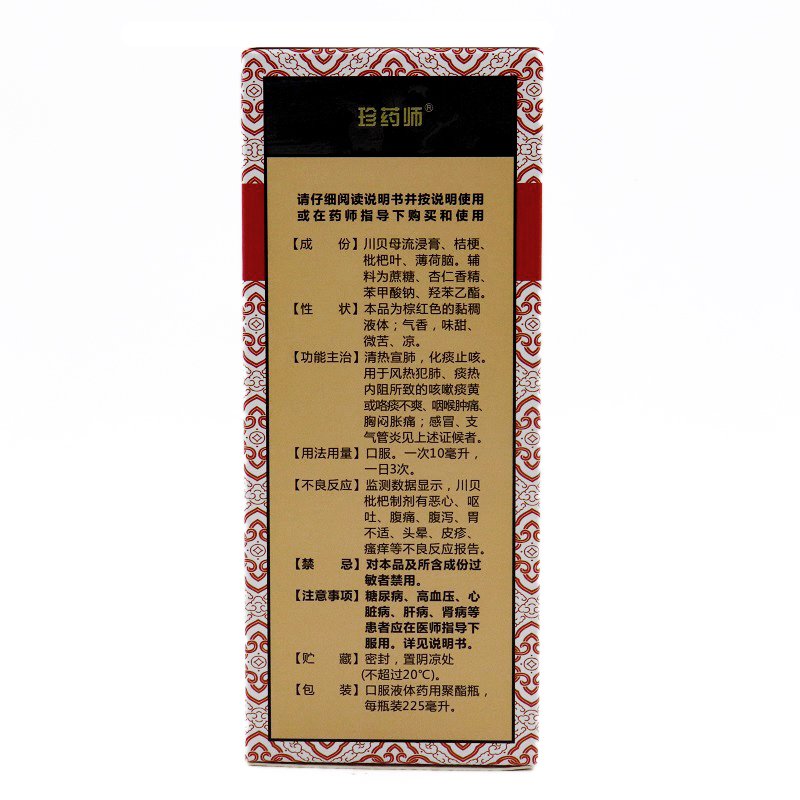 珍药师®
请仔细阅读说明书并按说明使用
或在药师指导下购买和使用
【成 份】川贝母流浸膏、桔梗、
枇杷叶、薄荷脑。辅
料为蔗糖、杏仁香精、
苯甲酸钠、羟苯乙酯。
【性 状】本品为棕红色的黏稠
液体；气香，味甜、
微苦、凉。
【功能主治】清热宣肺，化痰止咳。
用于风热犯肺、痰热
内阻所致的咳嗽痰黄
或咯痰不爽、咽喉肿痛、
胸闷胀痛；感冒、支
气管炎见上述证候者。
【用法用量】口服。一次10毫升，
一日3次。
【不良反应】监测数据显示，川贝
枇杷制剂有恶心、呕
吐、腹痛、腹泻、胃
不适、头晕、皮疹、
瘙痒等不良反应报告。
【禁 忌】对本品及所含成份过
敏者禁用。
【注意事项】糖尿病、高血压、心
脏病、肝病、肾病等
患者应在医师指导下
服用。详见说明书。
【贮 藏】密封，置阴凉处
(不超过20℃)。
【包 装】口服液体药用聚酯瓶，
每瓶装225毫升。